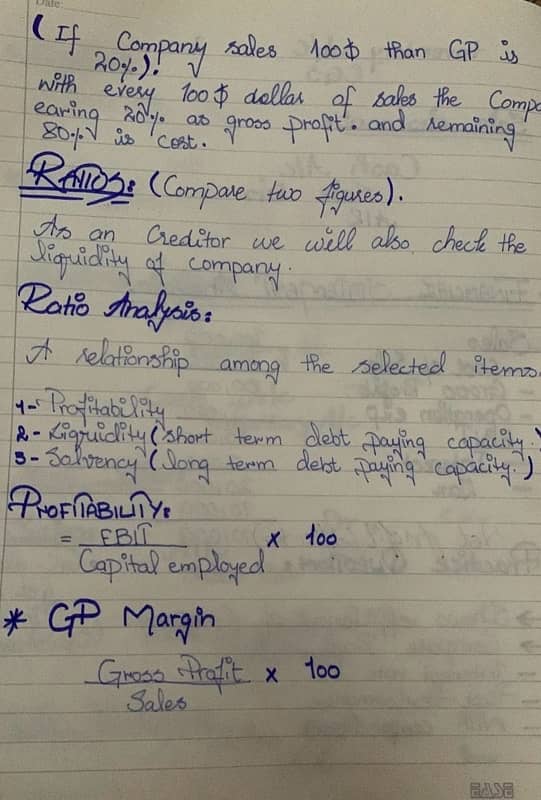 Date:
(If Company sales 100$ than GP is
20%).
with every 100$ dollar of sales the Compa
earing 20% as gross profit. and remaining
80% is cost.
RATIOS: (Compare two figures).
As an Creditor we will also check the
liquidity of company.
Ratio Analysis:
A relationship among the selected items.
1- Profitability
2- Liquidity (short term debt paying capacity.)
3- Solvency (long term debt paying capacity.)
PROFITABILITY:
= EBIT x 100
Capital employed
* GP Margin
Gross Profit x 100
Sales
EASE